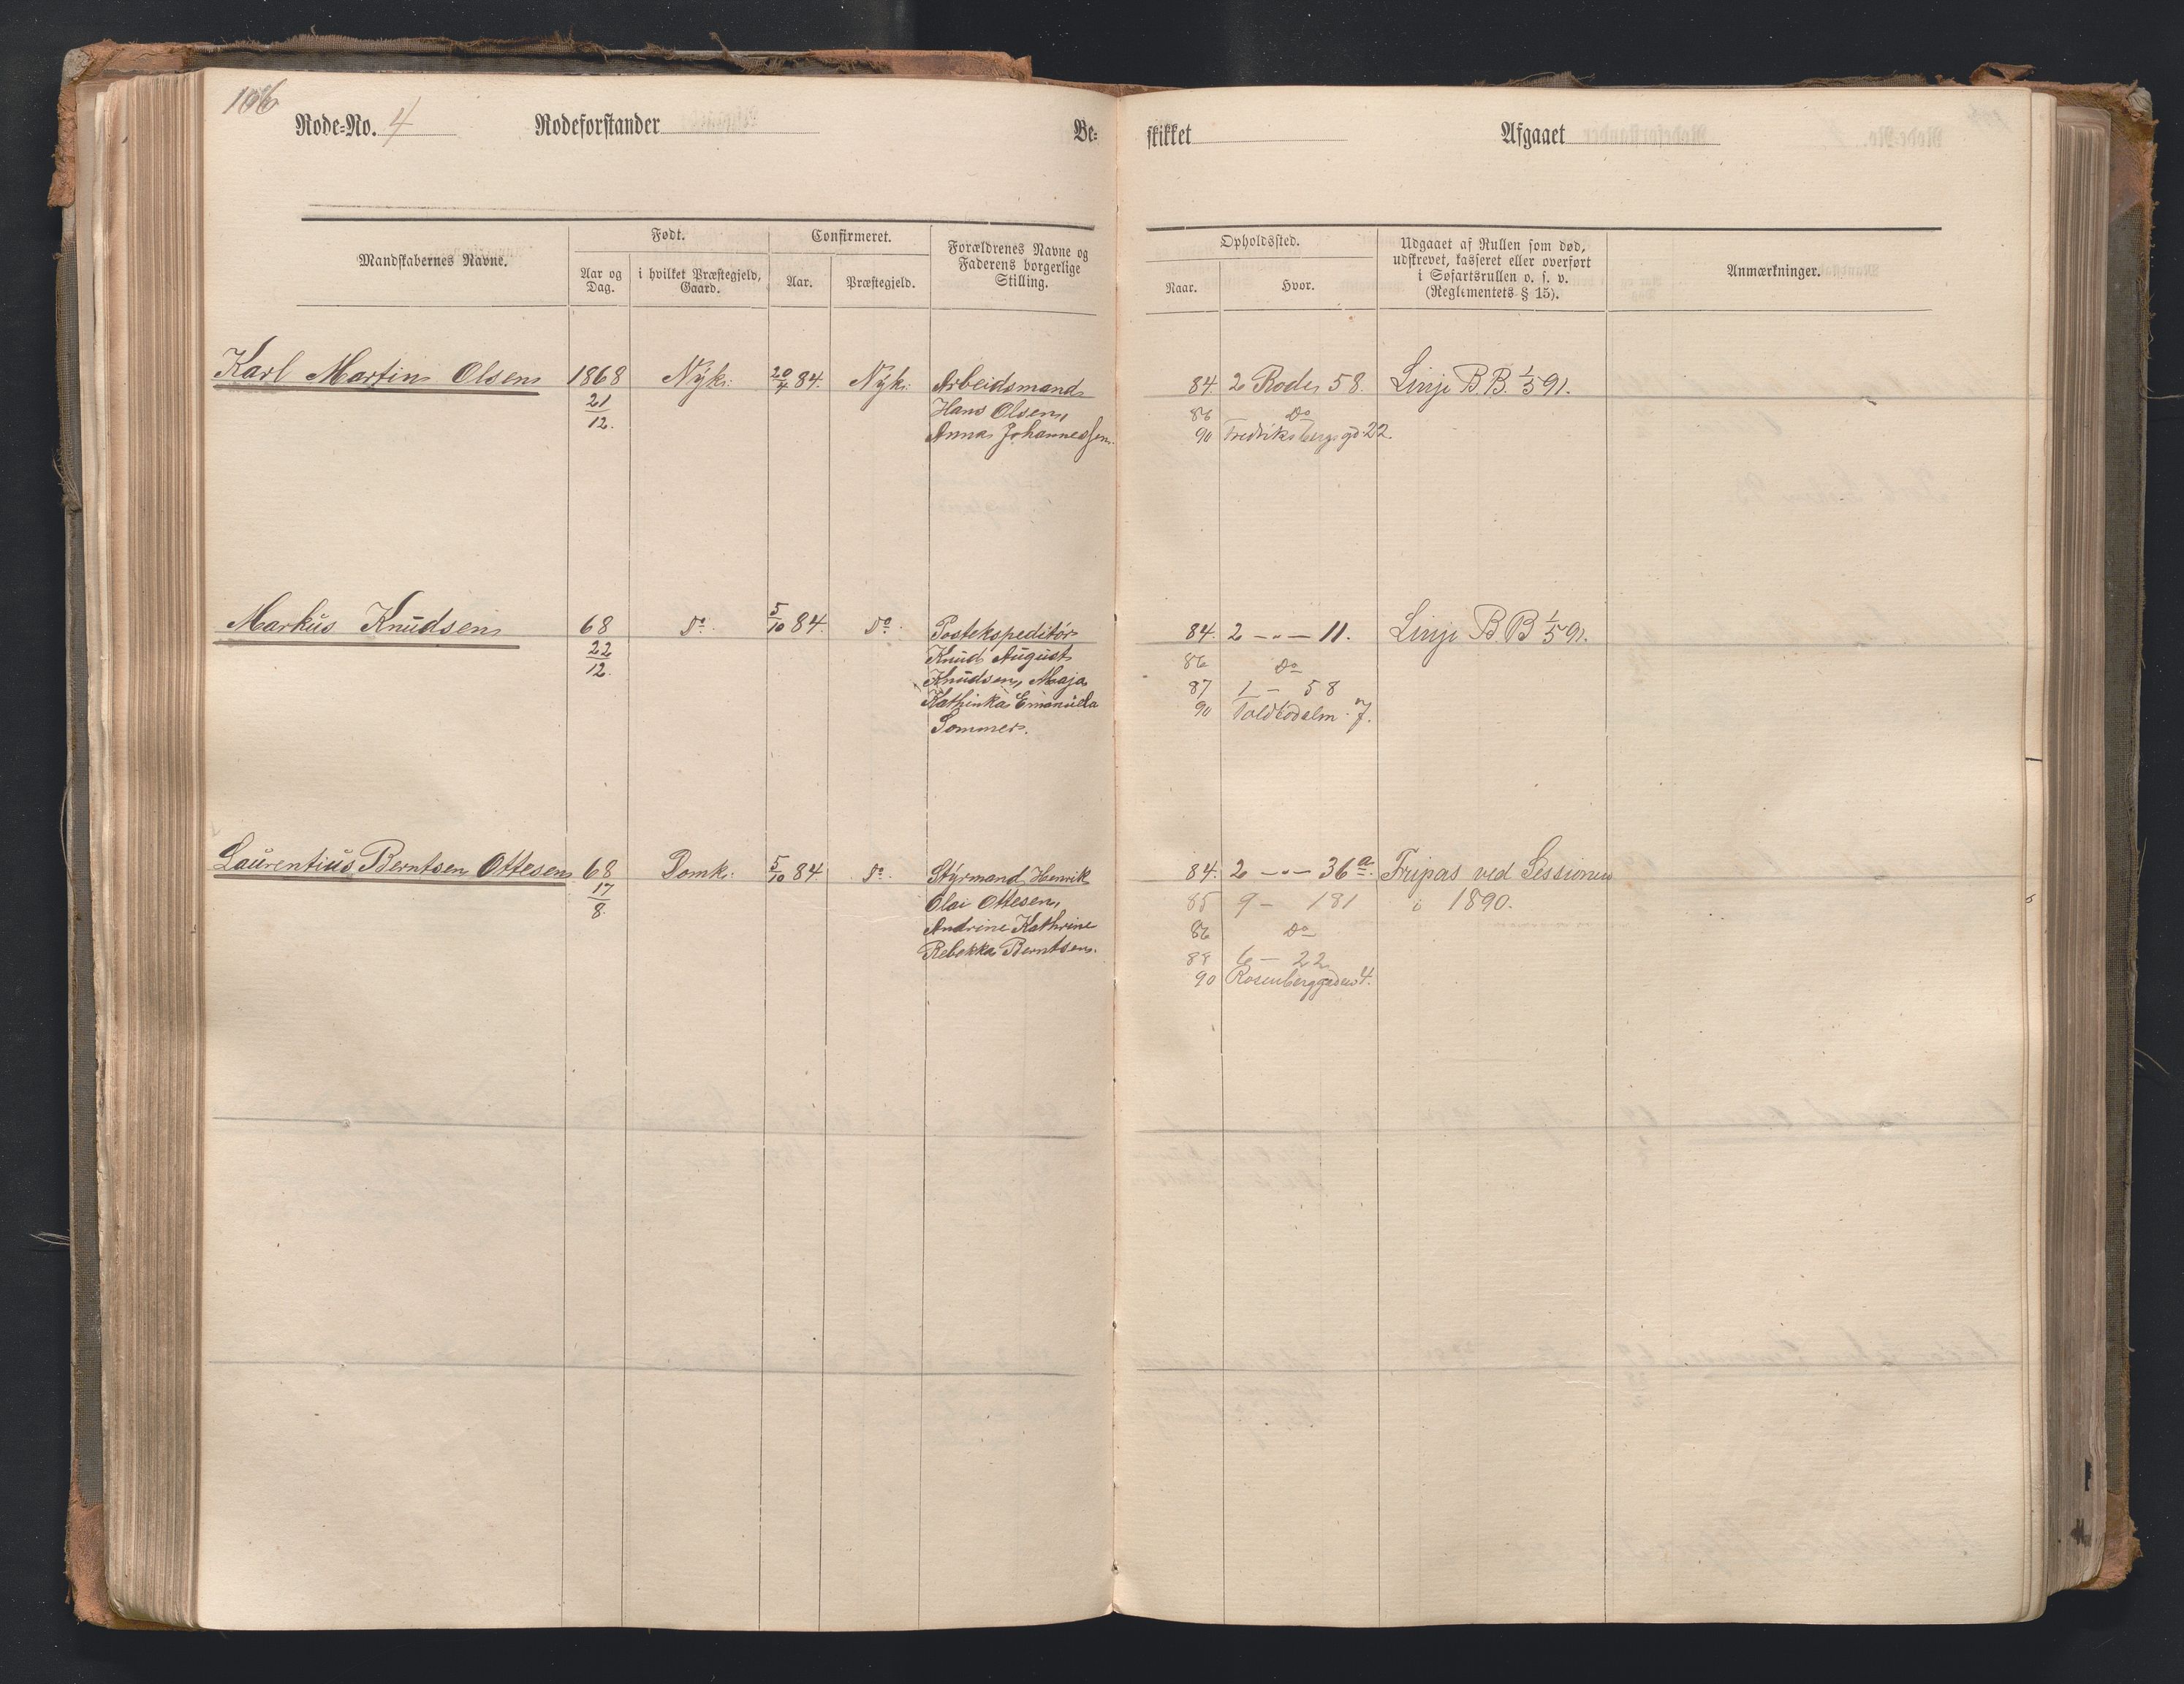 106
Rode=No. 4 Rodeforstander Be=
skikket Afgaaet
Mandskabernes Navne. Født. Confirmeret. Forældrenes Navne og Faderens borgerlige Stilling.
Aar og Dag. i hvilket Præstegjeld, Gaard. Aar. Præstegjeld.
Opholdssted. Udgaaet af Rullen som død, udskrevet, kasseret eller overført i Søfartsrullen o. s. v. (Reglementets § 15). Anmærkninger.
Naar. Hvor.
Karl Martin Olsen 1868 Nyk: 20/4 84. Nyk: Arbeidsmand
21/12. Hans Olsen,
Anna Johannessen
84. 2 Rode 58. Linje B.B. 1/5 91.
86 Do
90 Fredriksbergsgd 22.
Markus Knudsen 68 Do. 5/10 84. Do. Postekspeditør
22/12. Knud August
Knudsen, Maja
Kathinka Emanuela
Sommer.
84. 2 -"- 11. Linje B.B 1/5 91.
86 Do
87 1 - 58
90 Toldbodalm. 7.
Laurentius Berntsen Ottesen 68 Domk. 5/10 84. Do. Styrmand Henrik
17/8. Olai Ottesen,
Andrine Kathrine
Rebekka Berntsen.
84. 2 -"- 36a. Fripas ved Sessionen
85 9 - 181 i 1890.
86 Do
88 6 - 22
90 Rosenberggaden 4.